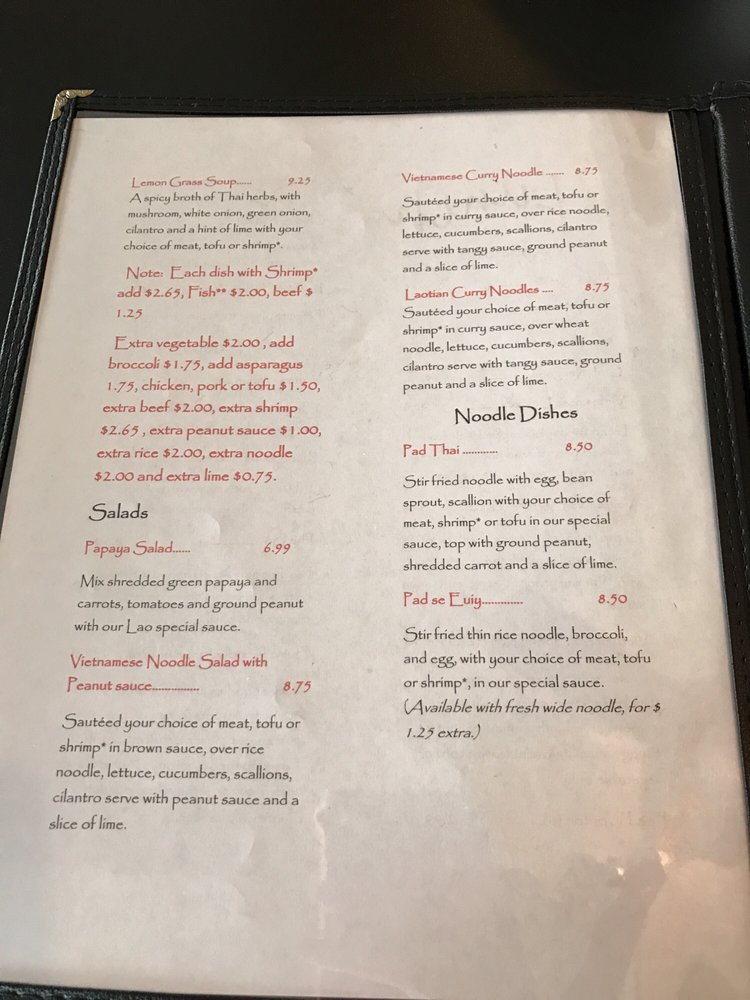 Lemon Grass Soup...... 9.25
A spicy broth of Thai herbs, with
mushroom, white onion, green onion,
cilantro and a hint of lime with your
choice of meat, tofu or shrimp*.
Note: Each dish with Shrimp*
add $2.65, Fish** $2.00, beef $
1.25
Extra vegetable $2.00 , add
broccoli $1.75, add asparagus
1.75, chicken, pork or tofu $1.50,
extra beef $2.00, extra shrimp
$2.65 , extra peanut sauce $1.00,
extra rice $2.00, extra noodle
$2.00 and extra lime $0.75.
Salads
Papaya Salad...... 6.99
Mix shredded green papaya and
carrots, tomatoes and ground peanut
with our Lao special sauce.
Vietnamese Noodle Salad with
Peanut sauce................ 8.75
Sautéed your choice of meat, tofu or
shrimp* in brown sauce, over rice
noodle, lettuce, cucumbers, scallions,
cilantro serve with peanut sauce and a
slice of lime.
Vietnamese Curry Noodle ....... 8.75
Sautéed your choice of meat, tofu or
shrimp* in curry sauce, over rice noodle,
lettuce, cucumbers, scallions, cilantro
serve with tangy sauce, ground peanut
and a slice of lime.
Laotian Curry Noodles .... 8.75
Sautéed your choice of meat, tofu or
shrimp* in curry sauce, over wheat
noodle, lettuce, cucumbers, scallions,
cilantro serve with tangy sauce, ground
peanut and a slice of lime.
Noodle Dishes
Pad Thai ............ 8.50
Stir fried noodle with egg, bean
sprout, scallion with your choice of
meat, shrimp* or tofu in our special
sauce, top with ground peanut,
shredded carrot and a slice of lime.
Pad se Euiy............. 8.50
Stir fried thin rice noodle, broccoli,
and egg, with your choice of meat, tofu
or shrimp*, in our special sauce.
(Available with fresh wide noodle, for $
1.25 extra.)